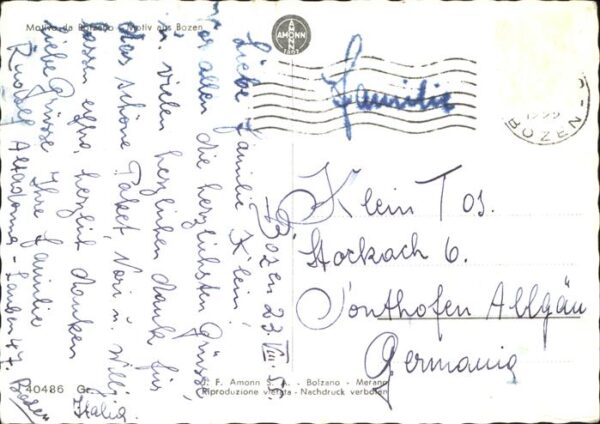 Motivo da Bolzano - Motiv aus Bozen
AMONN
AMONN
1802
BOZEN
Bozen 23. VIII. 55.
Liebe Familie Klein!
Vor allem die herzlichsten Grüsse,
u. vielen herzlichen dank für
das schöne Paket, Vori u. Willi
lassen extra, herzlich danken
Liebe Grüsse Ihre Familie
Rudolf - Lauben 47.
Bozen
Italia.
Familie
Klein Jos.
Storkach 6.
Sonthofen Allgäu
Germania
40486 Gr.
J. F. Amonn S. A. - Bolzano - Merano
Riproduzione vietata - Nachdruck verboten